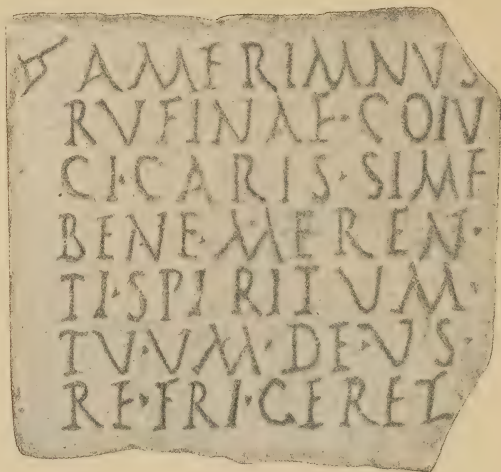 AMERIMNVS
RVFINAE·COIV
CI·CARIS·SIME
BENE·MEREN·
TI·SPIRITVM·
TV·VM·DE·VS·
RE·FRI·GERET